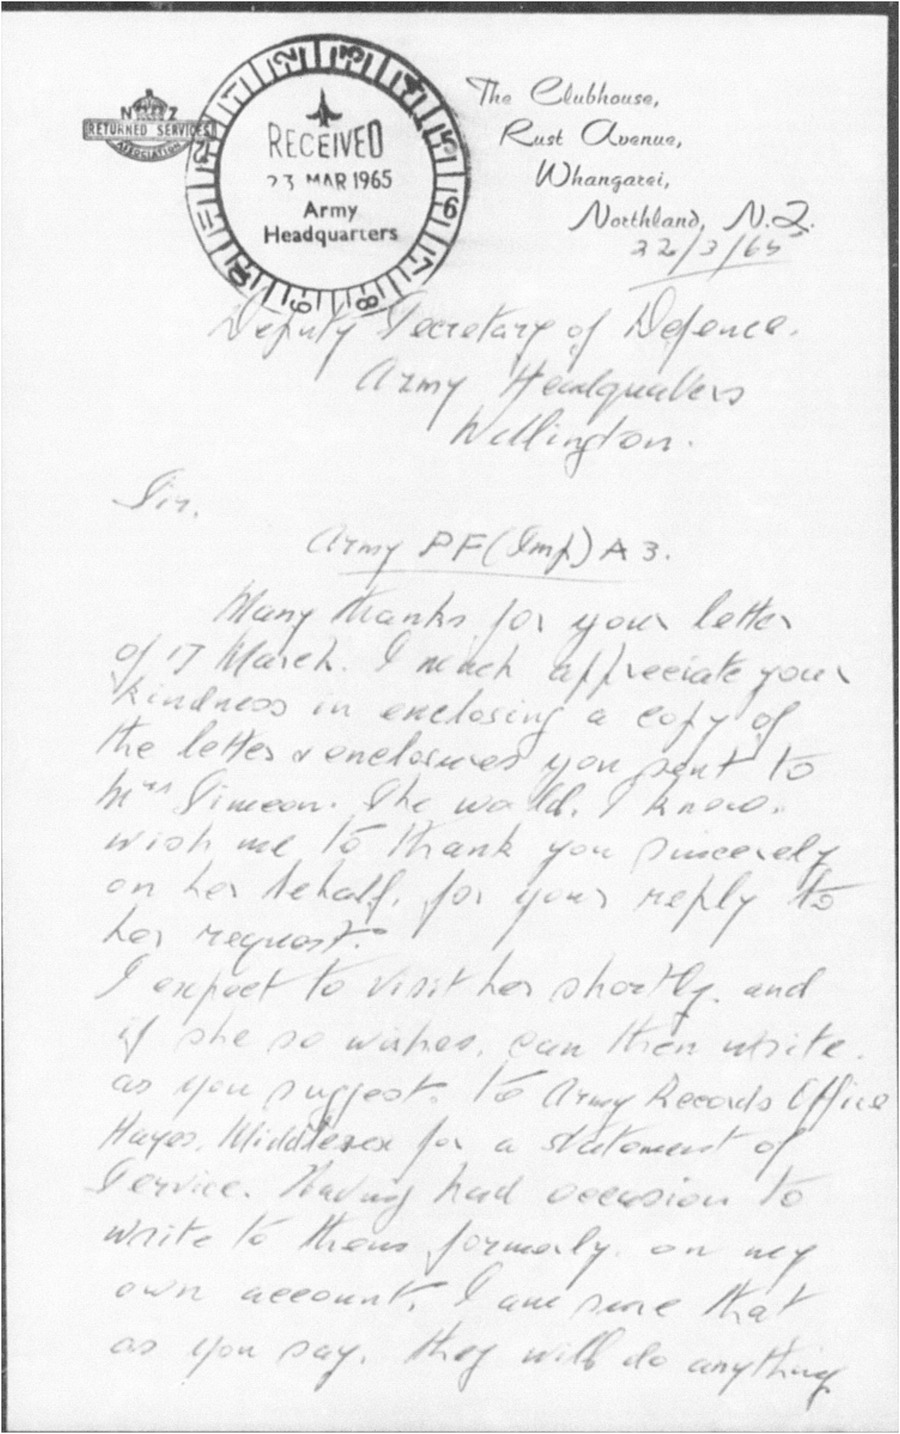 N Z
RETURNED SERVICES
ASSOCIATION
RECEIVED
23 MAR 1965
Army
Headquarters
The Clubhouse,
Rust Avenue,
Whangarei,
Northland, N.Z.
22/3/65
Deputy Secretary of Defence.
Army Headquarters
Wellington.
Sir,
Army PF(Imp) A 3.
Many thanks for your letter
of 17 March. I much appreciate your
kindness in enclosing a copy of
the letter & enclosures you sent to
Mrs Simeon. She would, I know,
wish me to thank you sincerely
on her behalf, for your reply to
her request.
I expect to visit her shortly, and
if she so wishes, can then write,
as you suggest, to Army Records Office
Hayes, Middlesex for a statement of
Service. Having had occasion to
write to them formerly, on my
own account, I am sure that
as you say, they will do anything